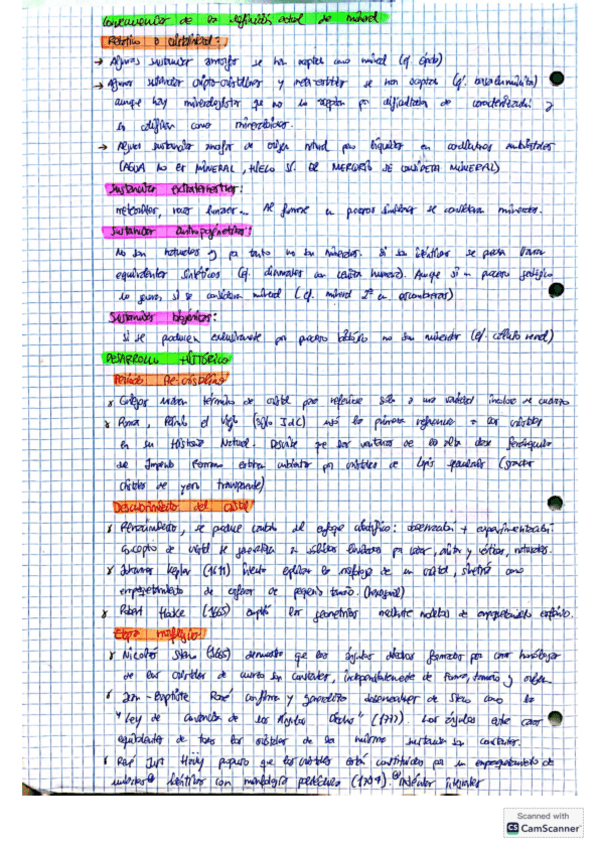 Consecuencias de la definición actual de mineral
Relativo a cristalinidad:
→ Algunas sustancias amorfas se han aceptado como mineral (ej. ópalo)
→ Algunas sustancias cripto-cristalinas y metamícticas se han aceptado (ej.
aunque hay mineralogistas que no lo aceptan por dificultades de caracterización y
las califican como mineraloides.
→ Algunas sustancias de origen natural pero líquidas en condiciones ambientales
(AGUA NO ES MINERAL, HIELO SÍ. EL MERCURIO SE CONSIDERA MINERAL)
Sustancias extraterrestres:
meteoritos, rocas lunares... Al formarse en procesos similares se consideran minerales.
Sustancias antropogénicas:
No son naturales y por tanto no son minerales. Si son idénticas se pueden llamar
equivalentes sintéticos (ej. diamantes con ceniza humana). Aunque si un proceso geológico
lo genera, sí se considera mineral (ej. mineral 2º en escombreras)
Sustancias biogénicas:
Si se producen exclusivamente por proceso biótico no son minerales (ej. cálculo renal)
DESARROLLO HISTÓRICO
Periodo Pre-cristalino
Griegos usaron término de cristal para referirse sólo a una variedad incolora de cuarzo
Roma, Plinio el Viejo (siglo I dC) usó la primera referencia a los cristales
en su Historia Natural. Describe que las ventanas de la alta clase
del Imperio Romano estaban cubiertas por cristales de lapis specularis (grandes
cristales de yeso transparente)
Descubrimiento del cristal
Renacimiento, se produce cambio del enfoque científico: observación + experimentación
Concepto de cristal se generaliza a sólidos limitados por caras, aristas y vértices, naturales.
Johannes Kepler (1611) intentó explicar la morfología de un cristal, simetría como
empaquetamiento de esferas de pequeño tamaño. (hexagonal)
Robert Hooke (1665) explicó las geometrías mediante modelos de empaquetamiento esférico.
Etapa morfológica:
Nicolás Steno demuestra que los ángulos diedros formados por caras homólogas
de los cristales de cuarzo son constantes, independientemente de forma, tamaño y origen.
Jean-Baptiste Romé confirma y generaliza observaciones de Steno como la
"Ley de constancia de los Ángulos Diedros" (1777). Los ángulos entre caras
equivalentes de todos los cristales de la misma sustancia son constantes.
René Just Haüy propuso que los cristales están constituidos por un empaquetamiento de
idénticas con morfología poliédrica
Scanned with
CS CamScanner